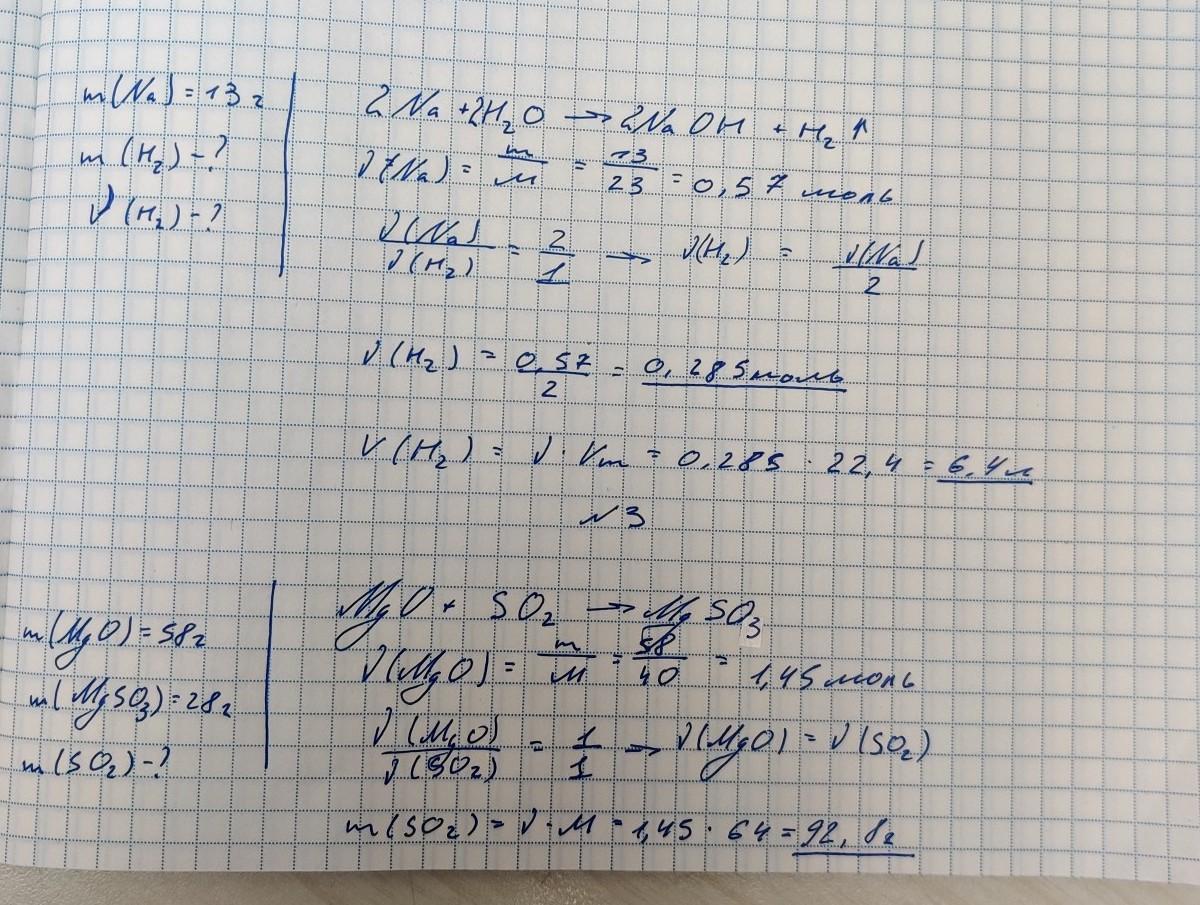 m(Na) = 13 г
m (H₂) - ?
ν (H₂) - ?
2Na + 2H₂O → 2NaOH + H₂↑
ν(Na) = m/M = 13/23 = 0,57 моль
ν(Na)/ν(H₂) = 2/1 → ν(H₂) = ν(Na)/2
ν(H₂) = 0,57/2 = 0,285 моль
V(H₂) = ν · Vm = 0,285 · 22,4 = 6,4 л
№3
m(MgO) = 58 г
m(MgSO₃) = 28 г
m(SO₂) - ?
MgO + SO₂ → MgSO₃
ν(MgO) = m/M = 58/40 = 1,45 моль
ν(MgO)/ν(SO₂) = 1/1 → ν(MgO) = ν(SO₂)
m(SO₂) = ν · M = 1,45 · 64 = 92,8 г